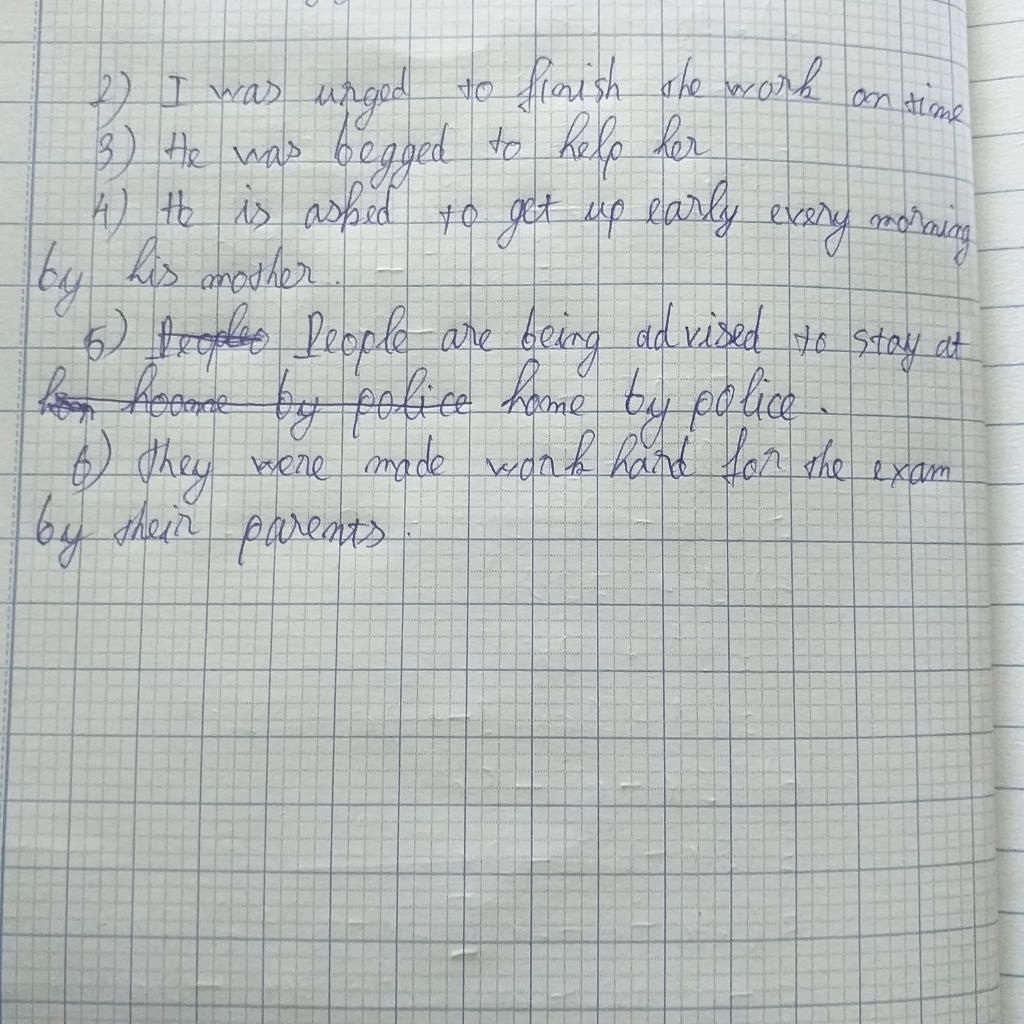 2) I was urged to finish the work on time
3) He was begged to help her
4) He is asked to get up early every morning
by his mother.
5) People People are being advised to stay at
hoome by police home by police.
6) they were made work hard for the exam
by their parents.